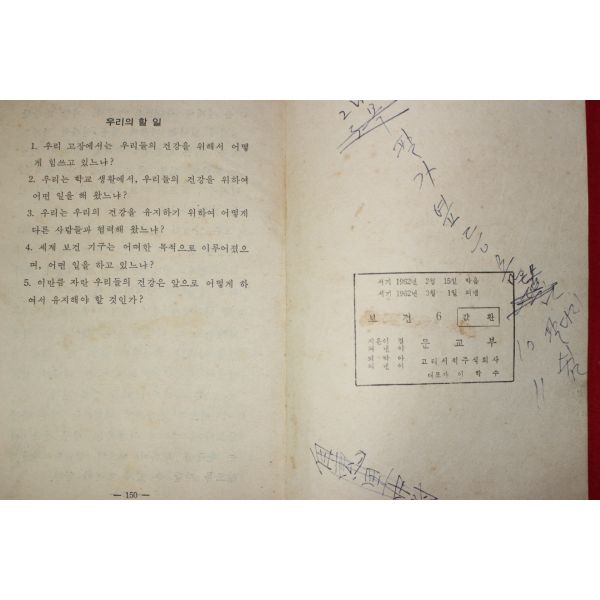 우리의 할 일
1. 우리 고장에서는 우리들의 건강을 위해서 어떻
게 힘쓰고 있느냐?
2. 우리는 학교 생활에서, 우리들의 건강을 위하여
어떤 일을 해 왔느냐?
3. 우리는 우리의 건강을 유지하기 위하여 어떻게
다른 사람들과 협력해 왔느냐?
4. 세계 보건 기구는 어떠한 목적으로 이루어졌으
며, 어떤 일을 하고 있느냐?
5. 이만큼 자란 우리들의 건강은 앞으로 어떻게 하
여서 유지해야 할 것인가?
— 150 —
서기 1962년 2월 15일
서기 1962년 3월 1일 펴냄
보건 6 값 환
지은이 문교부
고려서적주식회사
대표자 이학수